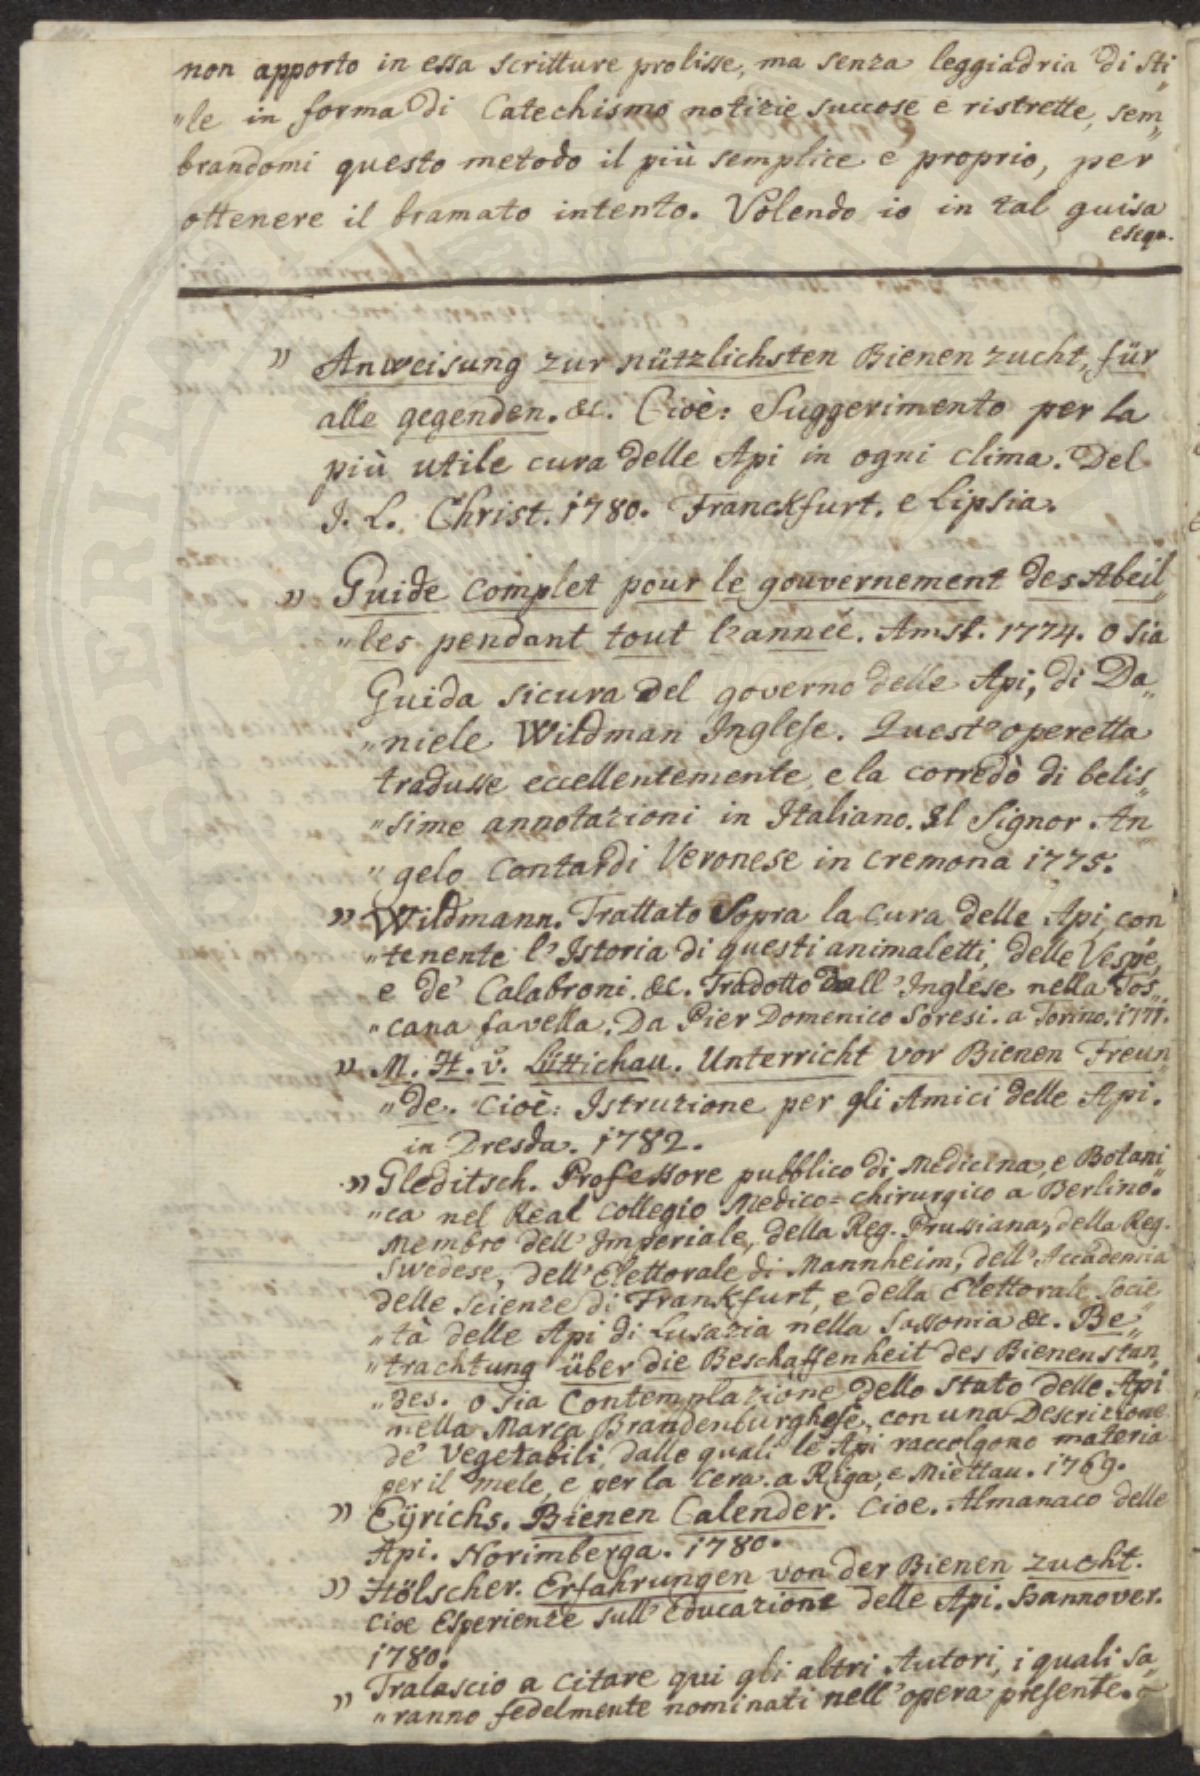 non apporto in essa scritture prolisse, ma senza leggiadria di sti„
„le in forma di Catechismo notizie succose e ristrette, sem„
brandomi questo metodo il più semplice e proprio, per
ottenere il bramato intento. Volendo io in tal guisa
esegu.
„ Anweisung zur nützlichsten Bienen zucht, für
alle gegenden. &c. Cioè: Suggerimento per la
più utile cura delle Api in ogni clima. Del
J. L. Christ. 1780. Franckfurt. e Lipsia.
„ Guide complet pour le gouvernement des Abeil„
„les pendant tout l'anneé. Amst. 1774. o sia
Guida sicura del governo delle Api, di Da„
„niele Wildman Inglese. Quest'operetta
tradusse eccellentemente, e la corredò di belis„
„sime annotazioni in Italiano. Il Signor An„
„gelo Contardi Veronese in Cremona 1775.
„ Wildmann. Trattato Sopra la cura delle Api, con„
„tenente l'Istoria di questi animaletti, delle Vespe,
e de' Calabroni. &c. Tradotto Dall' Inglese nella Tos„
„cana favella. Da Pier Domenico Soresi. a Torino. 1771.
„ M. H. v. Lüttichau. Unterricht vor Bienen Freun„
„de. Cioè: Istruzione per gli Amici delle Api.
in Dresda. 1782.
„ Gleditsch. Professore pubblico di Medicina, e Botani„
„ca nel Real Collegio Medico= chirurgico a Berlino.
Membro dell' Imperiale, della Reg. Prussiana, della Reg.
Swedese, dell' Elettorale di Mannheim, dell' Accademia
delle scienze di Frankfurt, e della Elettorale Socie„
„tà delle Api di Lusazia nella Sassonia &c. Be„
„trachtung über die Beschaffenheit des Bienenstan„
„des. o sia Contemplazione dello stato delle Api
nella Marca Brandenburghese, con una Descrizione
de' Vegetabili, dalle quali le Api raccolgono materia
per il mele, e per la cera. a Riga, e Miettau. 1769.
„ Eÿrichs. Bienen Calender. Cioe. Almanaco delle
Api. Norimberga. 1780.
„ Hölscher. Erfahrungen von der Bienen zucht.
cioe Esperienze sull' educazione delle Api. Hannover.
1780.
„ Tralascio a citare qui gli altri Autori, i quali sa„
„ranno fedelmente nominati nell' opera presente.